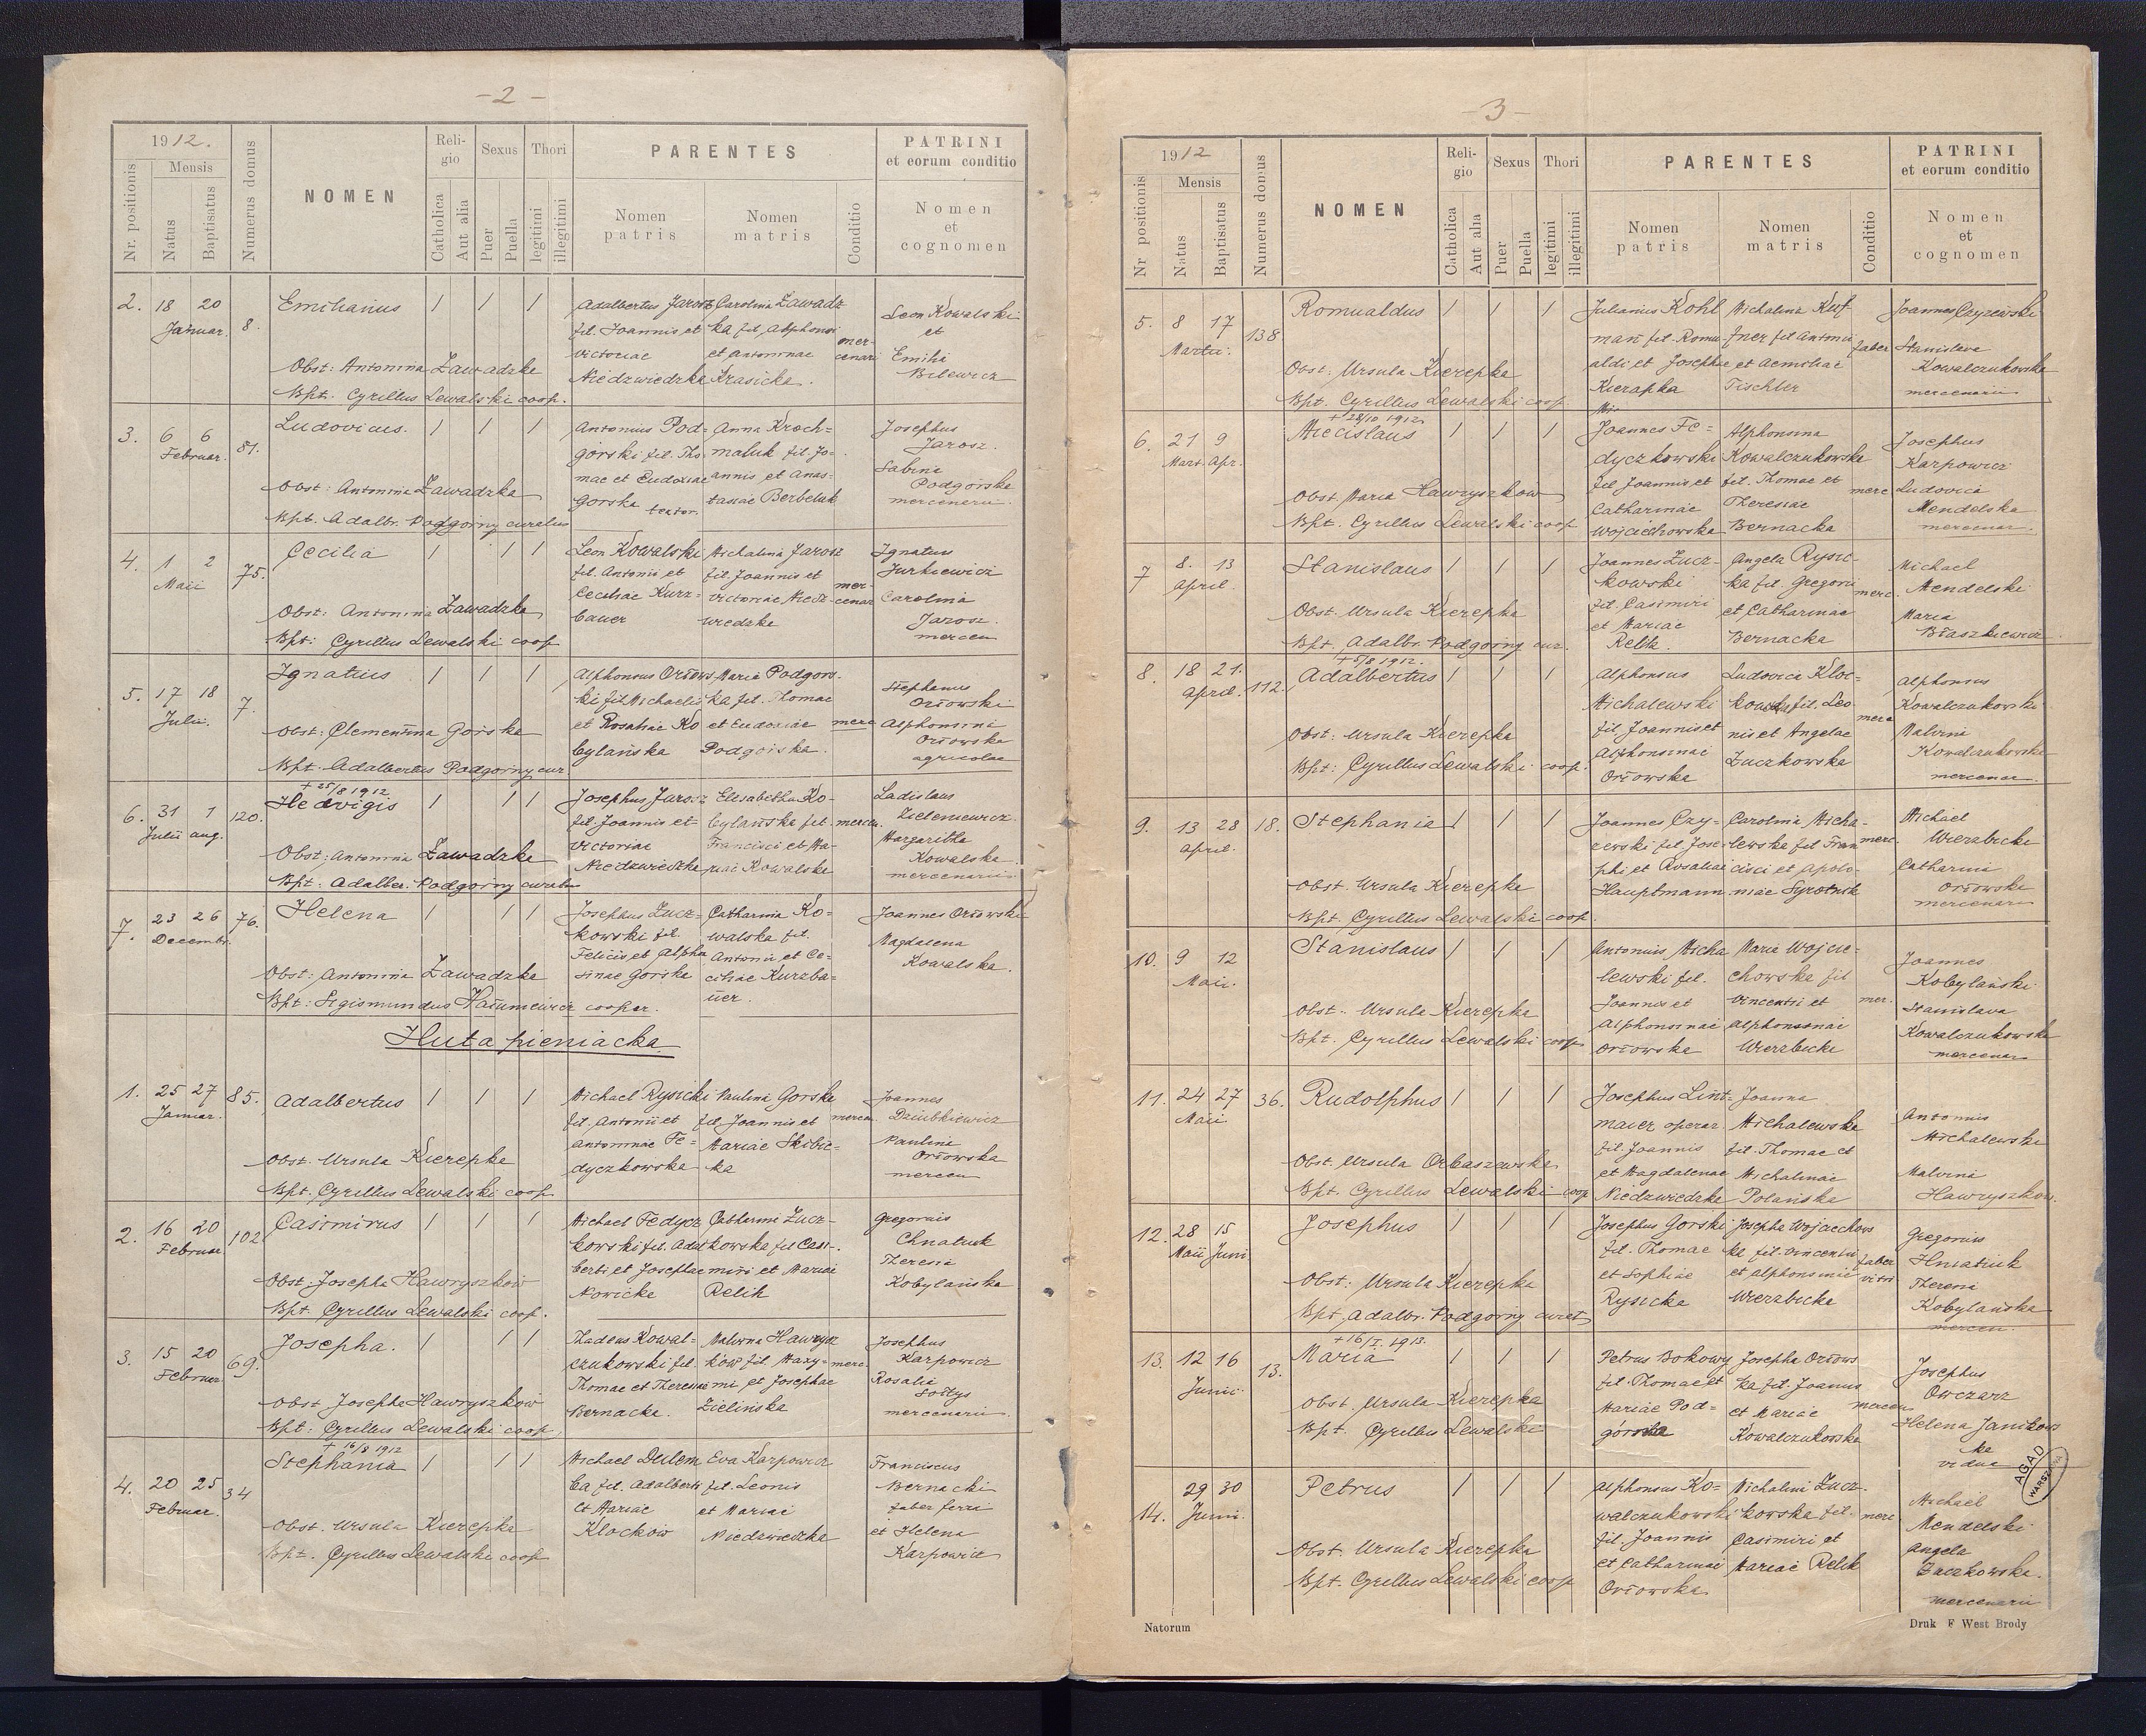 - 2 -
1912.
Mensis
Nr. positionis
Natus
Baptisatus
Numerus domus
NOMEN
Reli-
gio
Catholica
Aut alia
Sexus
Puer
Puella
Thori
legitimi
illegitimi
PARENTES
Nomen
patris
Nomen
matris
Conditio
PATRINI
et eorum conditio
Nomen
et
cognomen
2. 18 20
Januar.
8.
Emilianus
Obst: Antonina Zawadzka
Bpt. Cyrillus Lewalski coop.
Adalbertus Jarosz
fil. Joannis et
Victoriae
Niedzwiedzka
Carolina Zawadz
ka fil. Alphonsi
et Antoninae
Krasicka.
mer-
cenari
Leon Kowalski
et
Emilia
Bilewicz
3. 6 6
Februar.
81.
Ludovicus.
Obst: Antonina Zawadzka
Bpt. Adalbr. Podgorny curatus
Antonius Pod=
górski fil. Tho
mae et Eudoxiae
Gorska textor.
Anna Kroch=
maluk fil. Jo=
annis et Anas=
tasiae Berbeluk
Josephus
Jarosz.
Sabina
Podgórska
mercenarii
4. 1 2
Maii
75.
Cecilia
Obst: Antonina Zawadzka
Bpt: Cyrillus Lewalski coop
Leon Kowalski
fil. Antonii et
Ceciliae Kurz=
bauer
Michalina Jarosz
fil. Joannis et
Victoriae Niedz-
wiedzka
mer-
cenar
Ignatius
Jurkiewicz
Carolina
Jarosz.
mercen
5. 17 18
Julii.
7.
Ignatius
Obst: Clementina Gorska
Bpt. Adalbertus Podgorny cur
Alphonsus Orłows
ki fil Michaelis
et Rosaliae Ko
bylańska
Maria Podgors-
ka fil. Thomae
et Eudoxiae
Podgorska.
merc
Stephanus
Orłowski
Alphonsina
Orłowska
agricolae
6. 31 1
Julii aug.
120.
+ 25/8 1912
Hedvigis
Obst: Antonina Zawadzka
Bpt: Adalber. Podgorny curatus
Josephus Jarosz
fil. Joannis et
Victoriae
Niedzwiedzka
Elisabetha Ko-
bylańska fil.
Francisci et Ma-
riae Kowalska
mercen.
Ladislaus
Zieleniewicz.
Margaritha
Kowalska
mercenarii
7. 23 26
Decembr.
76.
Helena
Obst: Antonina Zawadzka
Bpt: Sigismundus cooper.
Josephus Zucz=
kowski fil.
Felicis et Alpho
sinae Gorska
Catharina Ko-
walska fil.
Antonii et Ce-
ciliae Kurzba-
uer.
Joannes Orłowski
Magdalena
Kowalska.
Huta pieniacka
1. 25 27
Januar.
85.
Adalbertus
Obst. Ursula Kierepka
Bpt. Cyrillus Lewalski coop
Michael Rysicki
fil. Antonii et
Antoninae Fe=
dyczkowska
Paulina Gorska
fil. Joannis et
Mariae Skibic-
ka
mercen.
Joannes
Dziubkiewicz
Paulina
Orłowska
mercen
2. 16 20
Februar
102
Casimirus
Obst. Josepha Hawryszkow
Bpt. Cyrillus Lewalski coop.
Michael Fedycz
kowski fil. Adal
berti et Josephae
Nowicka
Catharina Zucz-
kowska fil Casi-
miri et Mariae
Relik
Gregorius
Chnatiuk
Theresia
Kobylańska
3. 15 20
Februar
69.
Josepha.
Obst Josepha Hawryszkow
Bpt: Cyrillus Lewalski coop.
Thadeus Kowal=
czukowski fil.
Thomae et Theresiae
Bernacka.
Malvina Hawrysz
ków fil. Maxy=
mi et Josephae
Zielińska
merc.
Josephus
Karpowicz
Rosalia
Sołtys
mercenarii
4. 20 25
Februar.
34
+ 16/8 1912
Stephania
Obst. Ursula Kierepka
Bpt. Cyrillus Lewalski coop
Michael Dulem
ba fil. Adalberti
et Mariae
Klockow
Eva Karpowicz
fil. Leonis
et Mariae
Niedzwiedzka
Franciscus
Bernacki
faber ferri
et Helena
Karpowicz
- 3 -
1912
Mensis
Nr positionis
Natus
Baptisatus
Numerus domus
NOMEN
Reli-
gio
Catholica
Aut alia
Sexus
Puer
Puella
Thori
legitimi
illegitimi
PARENTES
Nomen
patris
Nomen
matris
Conditio
PATRINI
et eorum conditio
Nomen
et
cognomen
5. 8 17
Martii.
138
Romualdus
Obst: Ursula Kierepka
Bpt. Cyrillus Lewalski coop
Julianus Kohl
man fil. Romu
aldi et Josephae
Kierapka
Michalina Kuf
fner fil Antonii
et Aemiliae
Tischler
faber
Joannes Czyzewski
Stanislava
Kowalczukowska
mercenarii
6. 21 9
Mart. Apr.
+ 28/10 1912
Miecislaus
Obst Maria Hawryszkow
Bpt. Cyrillus Lewalski coop
Joannes Fe=
dyczkowski
fil Joannis et
Catharinae
Wojciechowska
Alphonsina
Kowalczukowska
fil. Thomae et
Theresiae
Bernacka
merc
Josephus
Karpowicz
Ludovica
Mendelska
mercenar.
7 8. 13
April.
Stanislaus
Obst. Ursula Kierepka
Bpt. Adalbr. Podgorny cur.
Joannes Zucz-
kowski
fil. Casimiri
et Mariae
Relik.
Angela Rysic-
ka fil. Gregorii
et Catharinae
Bernacka
merc.
Michael
Mendelski
Maria
Błaszkiewicz
8. 18 21.
April.
112.
+ 5/8 1912.
Adalbertus
Obst: Ursula Kierepka
Bpt: Cyrillus Lewalski coop.
Alphonsus
Michalewski
fil. Joannis et
Alphonsinae
Orłowska
Ludovica Kloc-
fil. Leo
nis et Angelae
Zuczkowska
merc
Alphonsus
Kowalczukowski
Malvina
Kowalczukowska
mercenar.
9. 13 28
April.
18.
Stephania
Obst. Ursula Kierepka
Bpt. Cyrillus Lewalski coop.
Joannes Czy-
zewski fil. Jose-
phi et Rosaliae
Hauptmann
Carolina Micha-
lewska fil Fran
cisci et Apolo-
niae Syrotnik
merc.
Michael
Wierzbicki
Catharina
Orłowska
mercenarii
10. 9 12
Maii.
Stanislaus
Obst. Ursula Kierepka
Bpt. Cyrillus Lewalski coop
Antonius Micha
lewski fil.
Joannis et
Alphonsinae
Orłowska
Maria Wojcie=
chowska fil
Vincentii et
Alphonsinae
Wierzbicka
mer.
Joannes
Kobylański
Stanislava
Kowalczukowska
mercenar
11. 24 27
Maii
36.
Rudolphus
Obst. Ursula Orbaszewska
Bpt. Cyrillus Lewalski coop
Josephus Lint=
maier operar
fil. Joannis
et Magdalenae
Niedzwiedzka
Joanna
Michalewska
fil. Thomae et
Michalinae
Polańska
Antonius
Michalewski
Malvina
Hawryszkow.
12. 28 15
Maii Juni.
Josephus
Obst: Ursula Kierepka
Bpt. Adalbr. Podgorny curat
Josephus Gorski
fil. Thomae
et Sophiae
Rysicka
Josepha Wojciechows
ka fil. Vincentii
et Alphonsinae
Wierzbicka
faber
vitri
Gregorius
Hniatiuk
Theresia
Kobylańska
mercen.
13. 12 16
Junii.
13.
+ 16/I. 1913.
Maria
Obst. Ursula Kierepka
Bpt. Cyrillus Lewalski
Petrus Bokowy
fil. Thomae et
Mariae Pod=
górska
Josepha Orłows
ka fil. Joannis
et Mariae
Kowalczukowska
mercen
Josephus
Owczarz
Helena Janikows
ka
vidua
14. 29 30
Junii.
Petrus
Obst. Ursula Kierepka
Bpt. Cyrillus Lewalski coop
Alphonsus Ko=
walczukowski
fil. Joannis
et Catharinae
Orłowska
Michalina Zucz-
kowska fil.
Casimiri et
Mariae Relik
merc
Michael
Mendelski
Angela
Zuczkowska.
mercenarii
AGAD
WARSZAWA
Natorum
Druk F West Brody